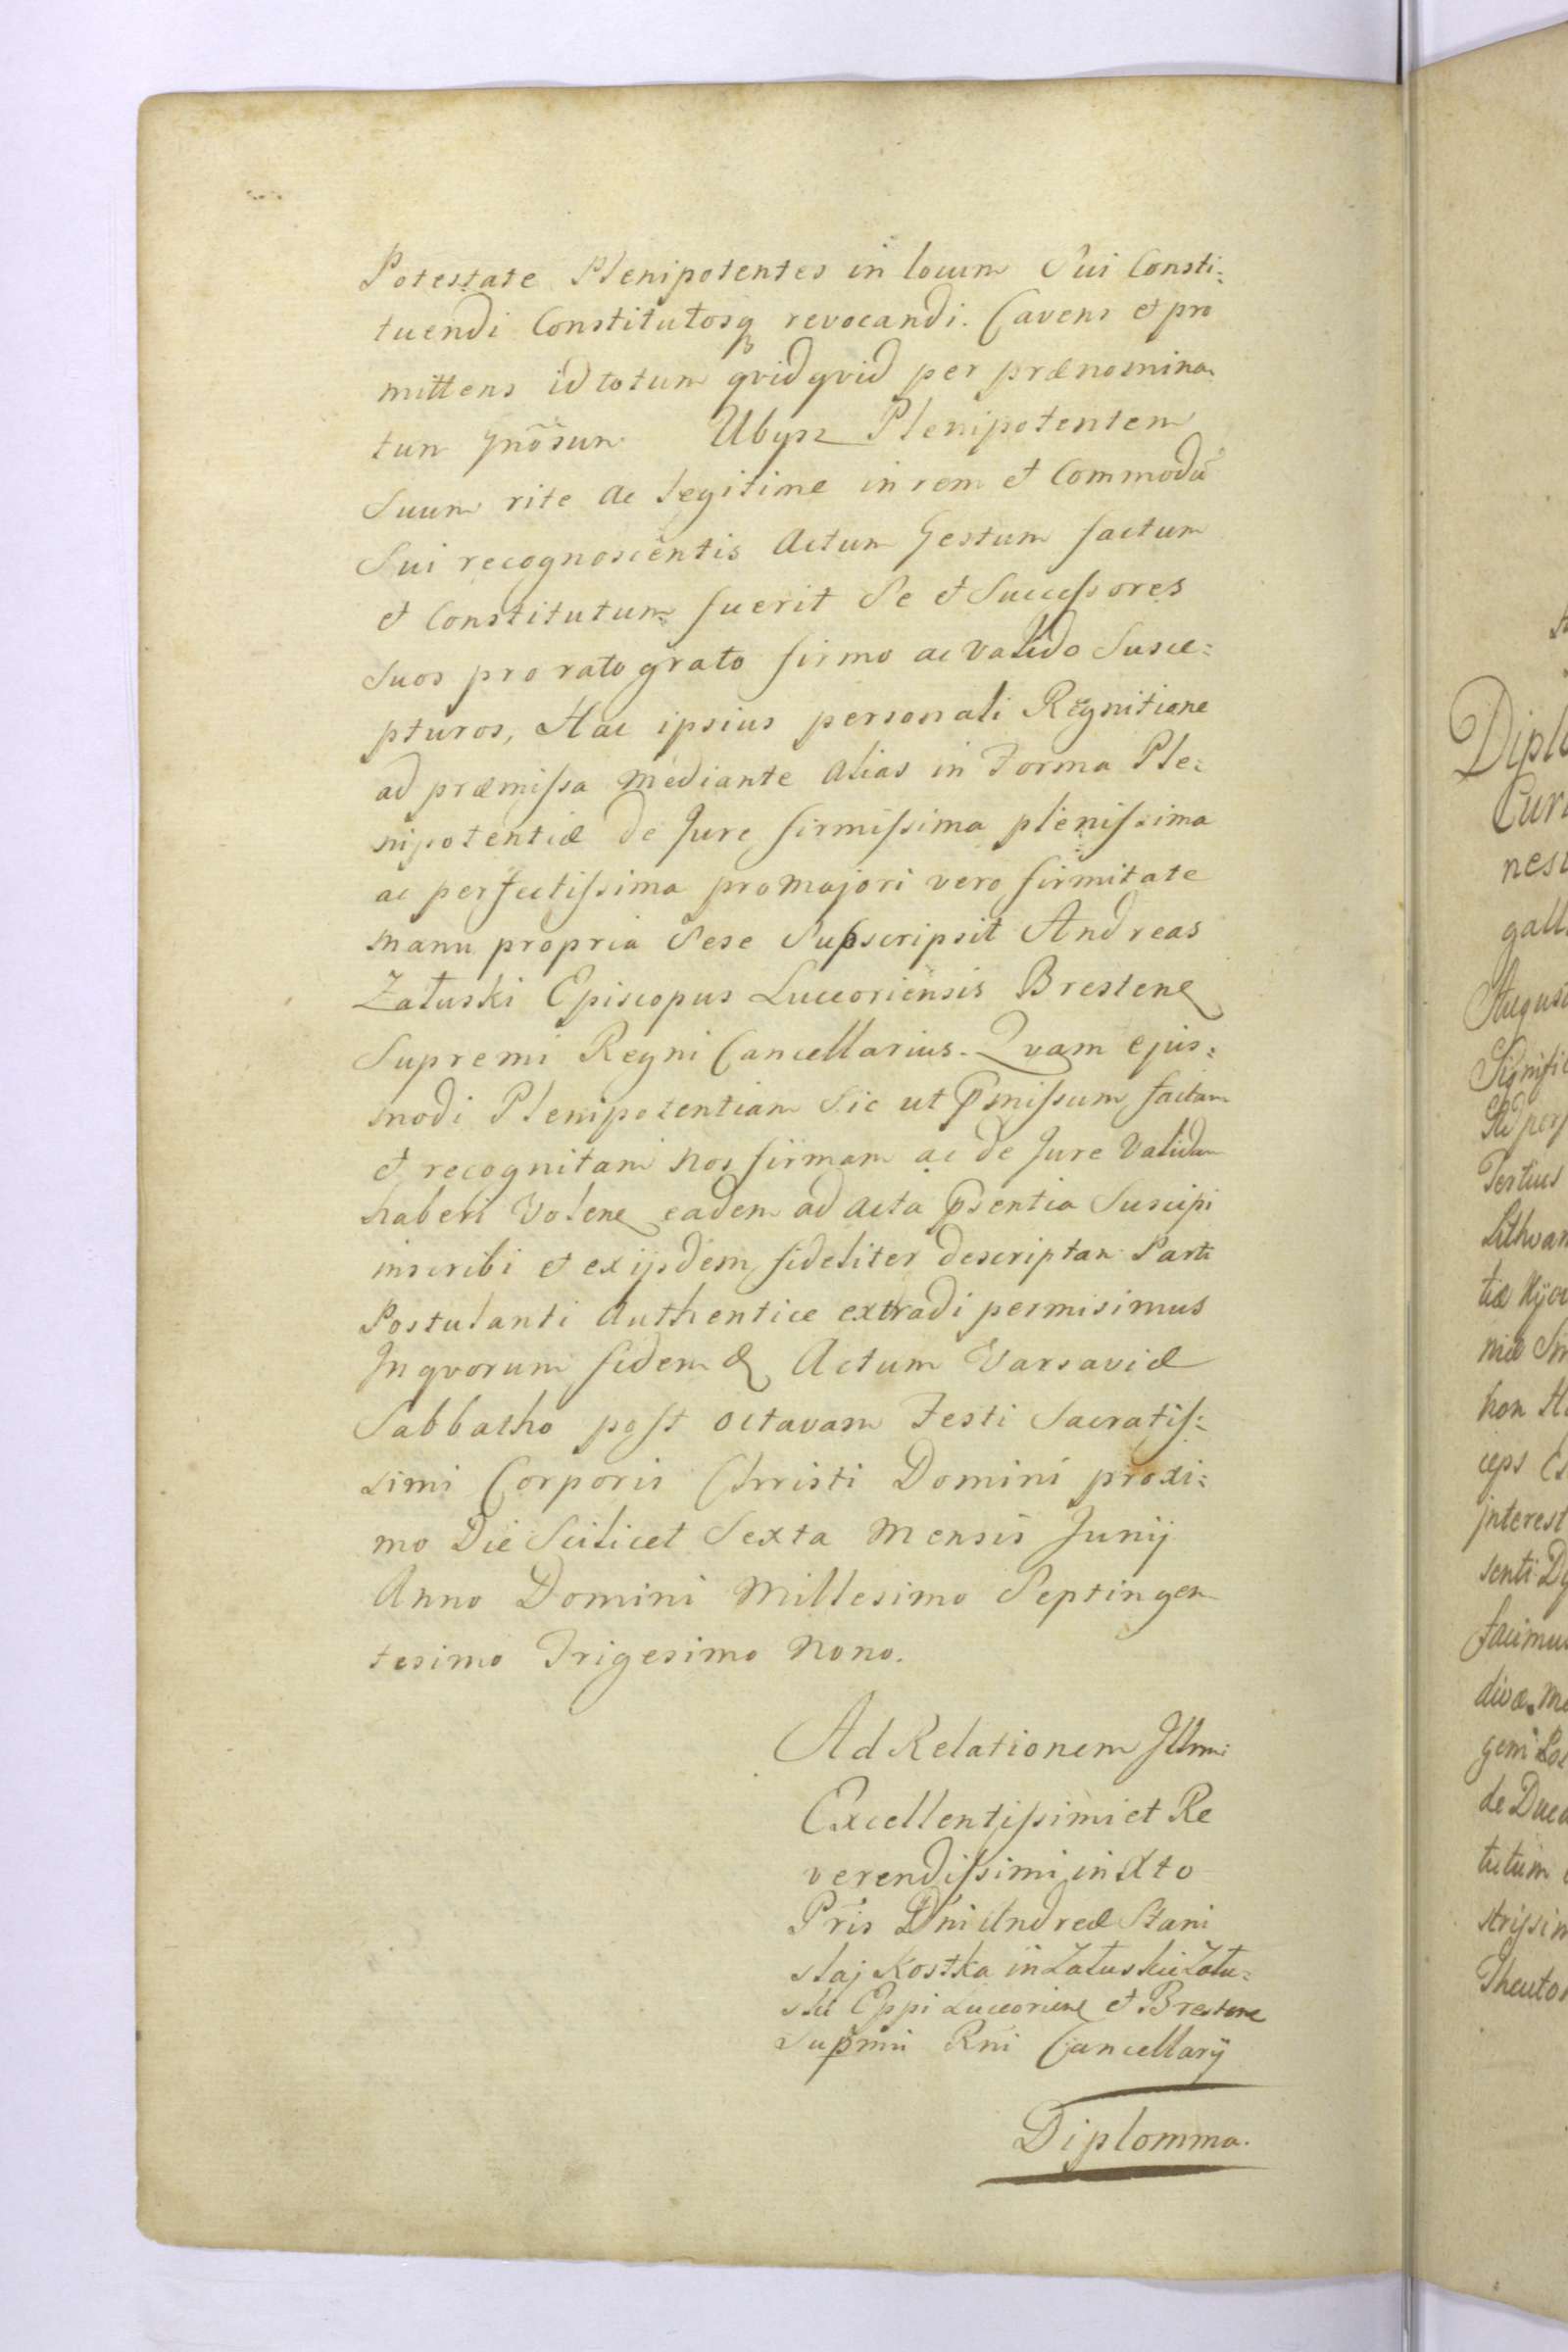 Potestate Plenipotentes in locum Sui Consti:
tuendi Constitutosq revocandi. Cavens et pro
mittens id totum qvidqvid per prænomina
tum Gnõsum Ubysz Plenipotentem
Suum rite ac legitime in rem et Commodũ
Sui recognoscentis Actum Gestum factum
et Constitutum fuerit Se et Successores
Suos pro rato grato firmo ac valido Susce:
pturos, Hac ipsius personali Regnitione
ad præmissa mediante alias in Forma Ple:
nipotentiæ de Jure firmissima plenissima
ac perfectissima pro majori vero firmitate
manu propria Sese Subscripsit Andreas
Załuski Episcopus Luceoriensis Brestens
Supremi Regni Cancellarius. Qvam ejus:
modi Plenipotentiam Sic ut pmissum factam
et recognitam nos firmam ac de Jure Validam
haberi Volens eadem ad acta psentia Suscipi
inscribi et ex ijsdem fideliter descriptam Parti
Postulanti Authentice extradi permisimus
In qvorum fidem & Actum Varsaviæ
Sabbatho post octavam Festi Sacratis:
simi Corporis Christi Domini proxi:
mo Die Scilicet Sexta Mensis Junij
Anno Domini Millesimo Septingen
tesimo Trigesimo Nono.
Ad Relationem Illmi
Excellentissimi et Re
verendissimi in Xto
Pris Dni Andreæ Stani
slaj Kostka in Załuskie Zału:
ski Eppi Luceoriens et Brestens
Supmi Rni Cancellarij
Diplomma.
Diplo
Cur
nes
gall
August
Signific
Ad perp
Tertius
Lithvan
tiæ Kijov
niæ Sm
hon
ceps
Interest
senti
facimus
divæ
geni
de Duca
tutum
strissim
Theuton